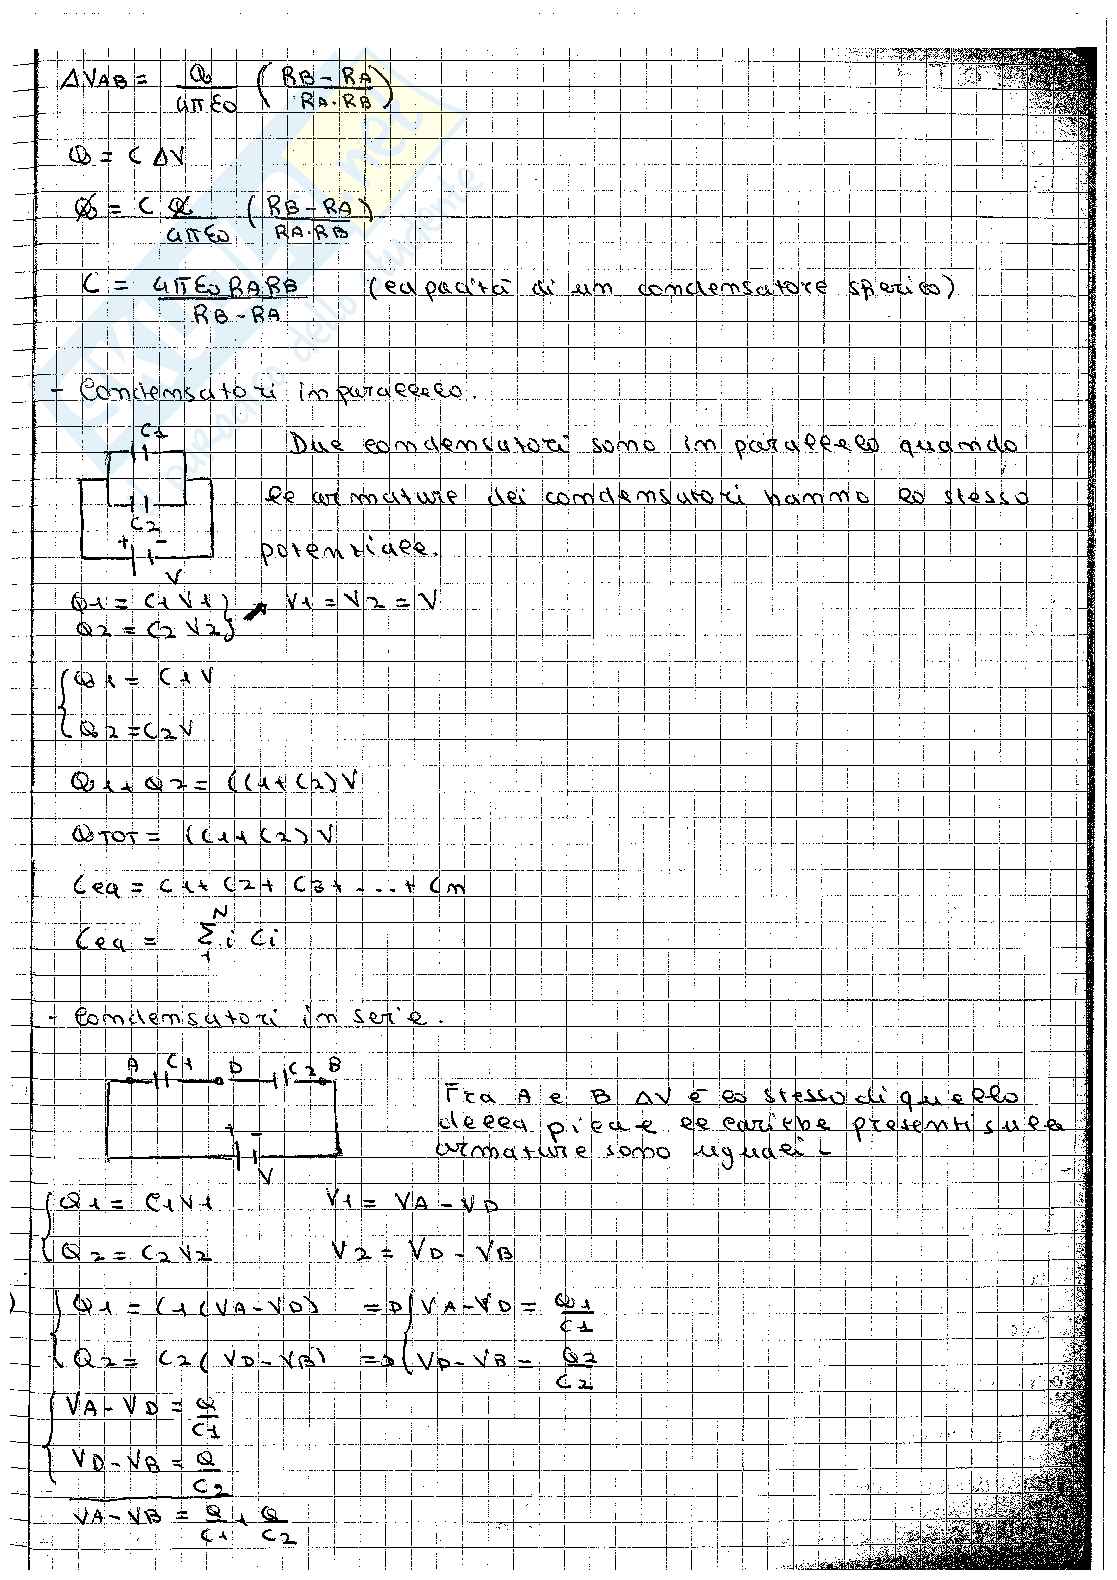 ΔVAB = Q/4πε0 (RB - RA/RA·RB)
Q = C ΔV
Q = C Q/4πε0 (RB - RA/RA·RB)
C = 4πε0 RA RB/RB - RA (capacità di un condensatore sferico)
- Condensatori in parallelo.
C1
C2
+ -
V
Due condensatori sono in parallelo quando
le armature dei condensatori hanno lo stesso
potenziale.
Q1 = C1 V1 } → V1 = V2 = V
Q2 = C2 V2 }
{ Q1 = C1 V
{ Q2 = C2 V
Q1 + Q2 = (C1 + C2) V
QTOT = (C1 + C2) V
Ceq = C1 + C2 + C3 + ... + Cn
Ceq = Σ1N i Ci
- Condensatori in serie.
A C1 D C2 B
+ -
V
Fra A e B ΔV è lo stesso di quello
della pila e le cariche presenti sulle
armature sono uguali -
{ Q1 = C1 V1 V1 = VA - VD
{ Q2 = C2 V2 V2 = VD - VB
) { Q1 = C1 (VA - VD) => { VA - VD = Q1/C1
{ Q2 = C2 (VD - VB) => { VD - VB = Q2/C2
{ VA - VD = Q/C1
{ VD - VB = Q/C2
VA - VB = Q/C1 + Q/C2